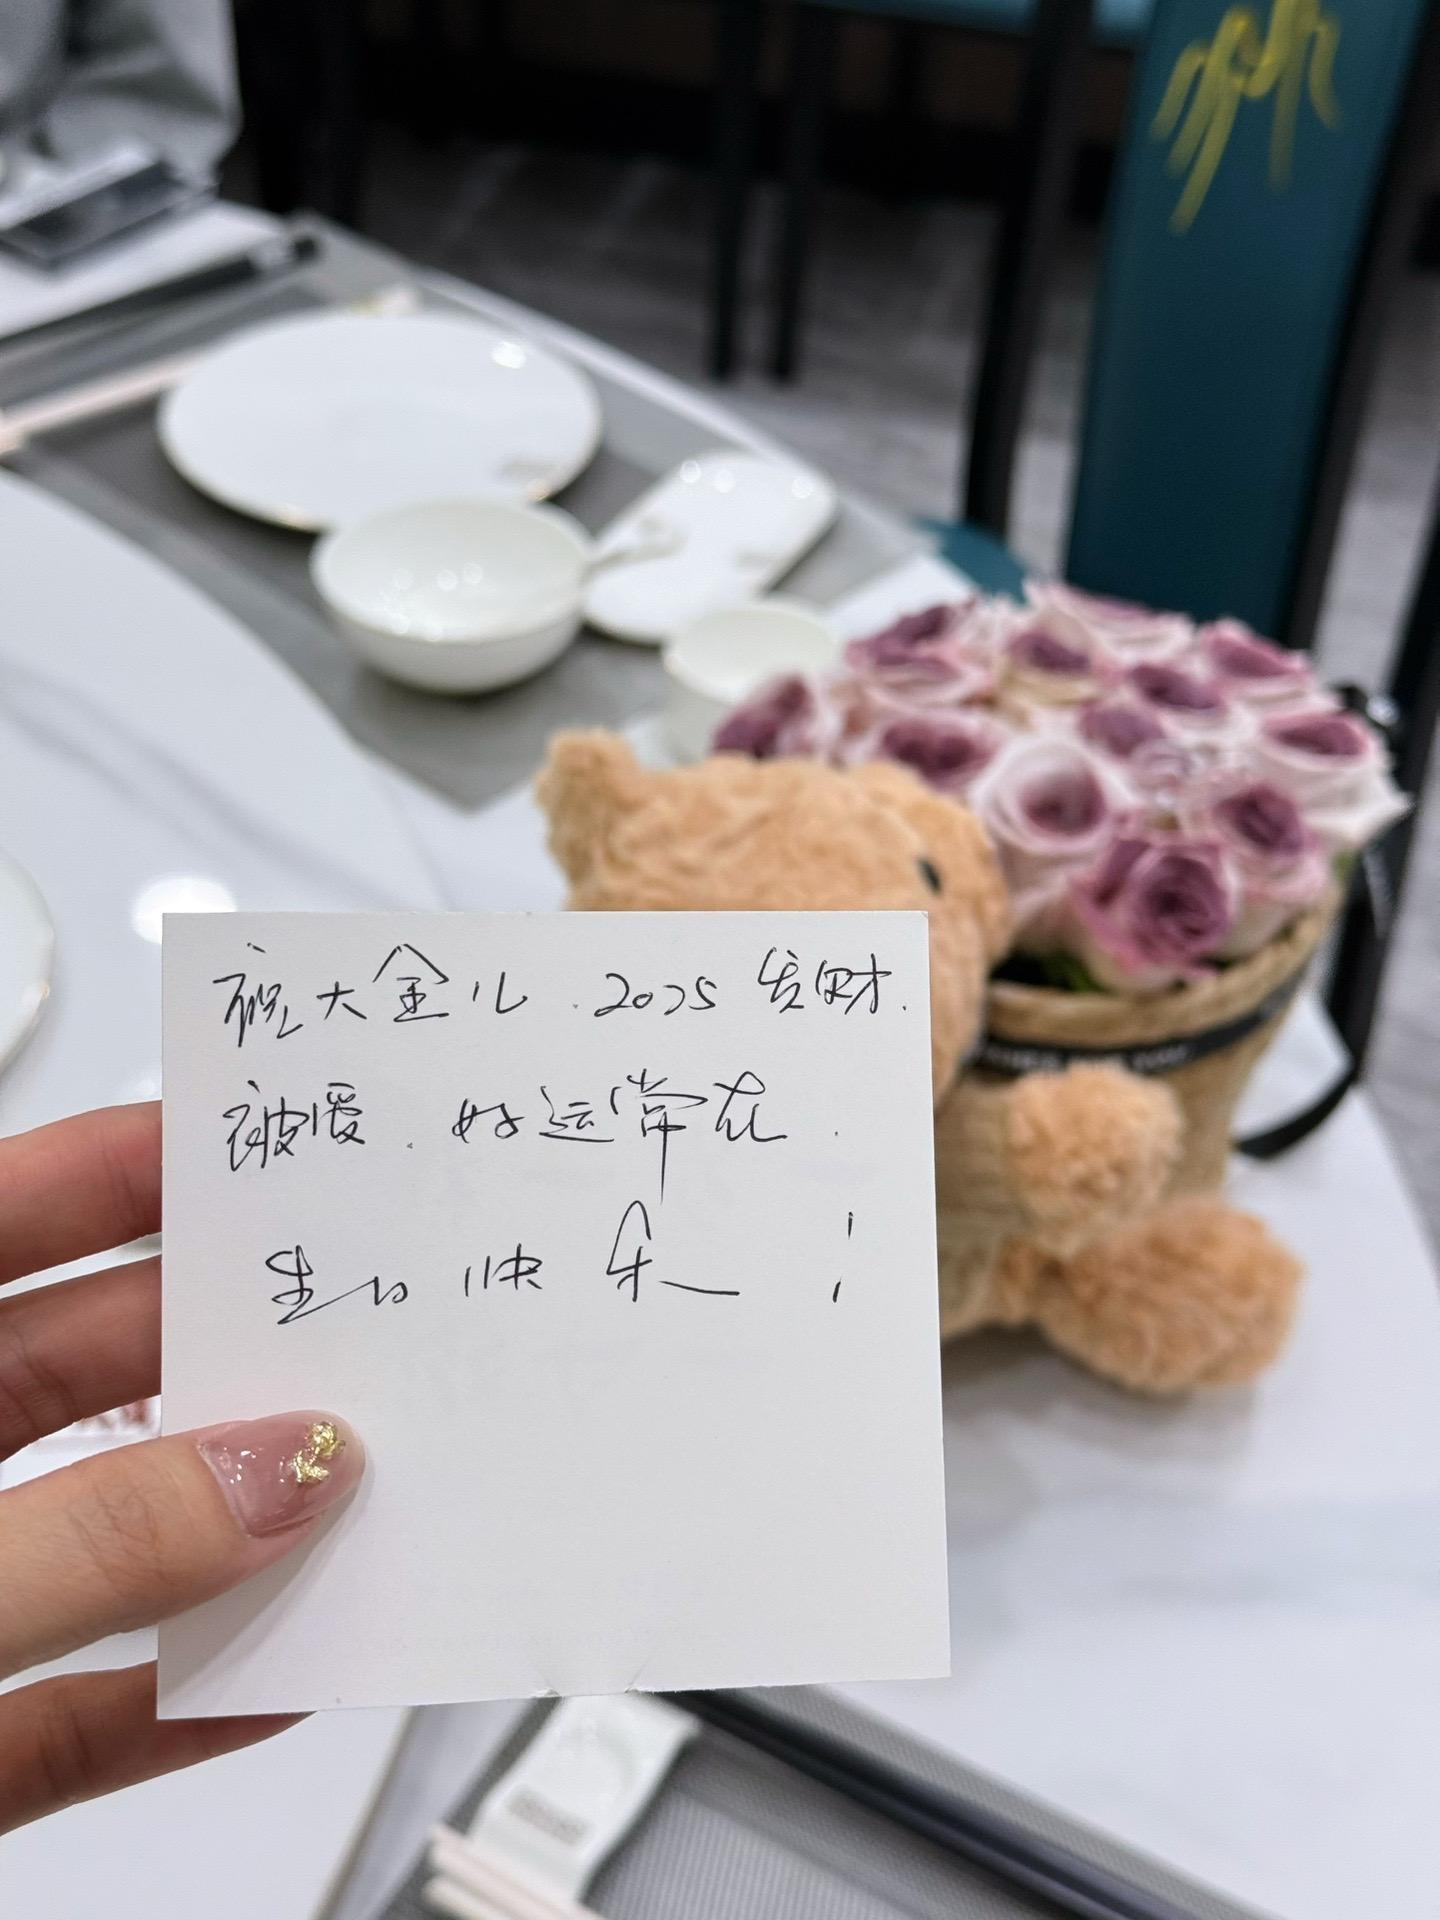 祝大金儿.2025发财.
被爱.好运常在.
生日快乐!